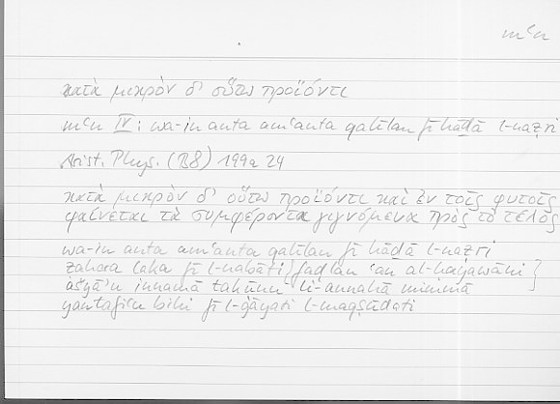 mʿn
κατὰ μικρὸν δ' οὕτω προϊόντι
mʿn IV : wa-in anta amʿanta qalīlan fī hāḏā l-naẓri
Arist. Phys. (B8) 199a 24
κατὰ μικρὸν δ' οὕτω προϊόντι καὶ ἐν τοῖς φυτοῖς
φαίνεται τὰ συμφέροντα γιγνόμενα πρὸς τὸ τέλος
wa-in anta amʿanta qalīlan fī hāḏā l-naẓri
ẓahara laka fī l-nabāti {faḍlan ʿan al-ḥayawāni}
ašyāʾu innamā takūnu li-annahā mimmā
yantafiʿu bihi fī l-ġāyati l-maqṣūdati